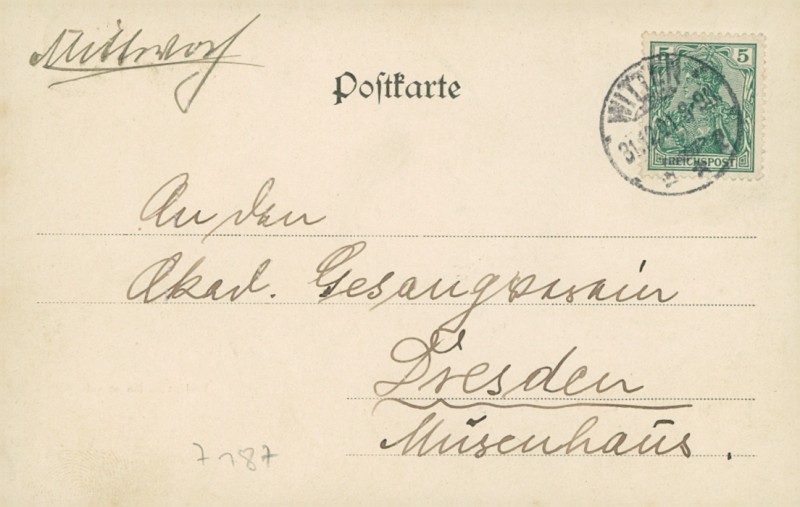 Mittwoch
Postkarte
5 5
REICHSPOST
WITTEN
An den
Akad. Gesangverein
Dresden
Musenhaus.
7187